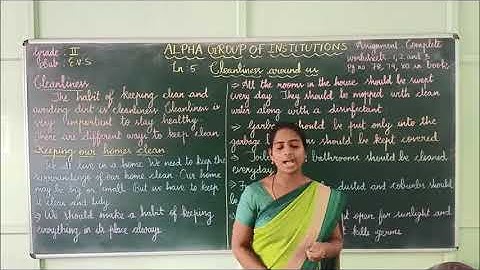 Grade : II
Sub : E.V.S
ALPHA GROUP OF INSTITUTIONS
Ln 5 Cleanliness around us
Assignment Complete
worksheets 1, 2 and 3
Pg no 78, 79, 80 in book
Cleanliness
The habit of keeping clean and
avoiding dirt is cleanliness Cleanliness is
very important to stay healthy
There are different ways to keep clean
Keeping our homes clean
We all live in a home We need to keep the
surroundings of our home clean Our home
may be big or small But we have to keep
it clean and tidy
We should make a habit of keeping
everything in its place always
All the rooms in the house should be swept
every day They should be mopped with clean
water along with a disinfectant
should be put only into the
garbage should be kept covered
bathrooms should be cleaned
everyday
dusted and cobwebs should
be
open for sunlight and
kills germs